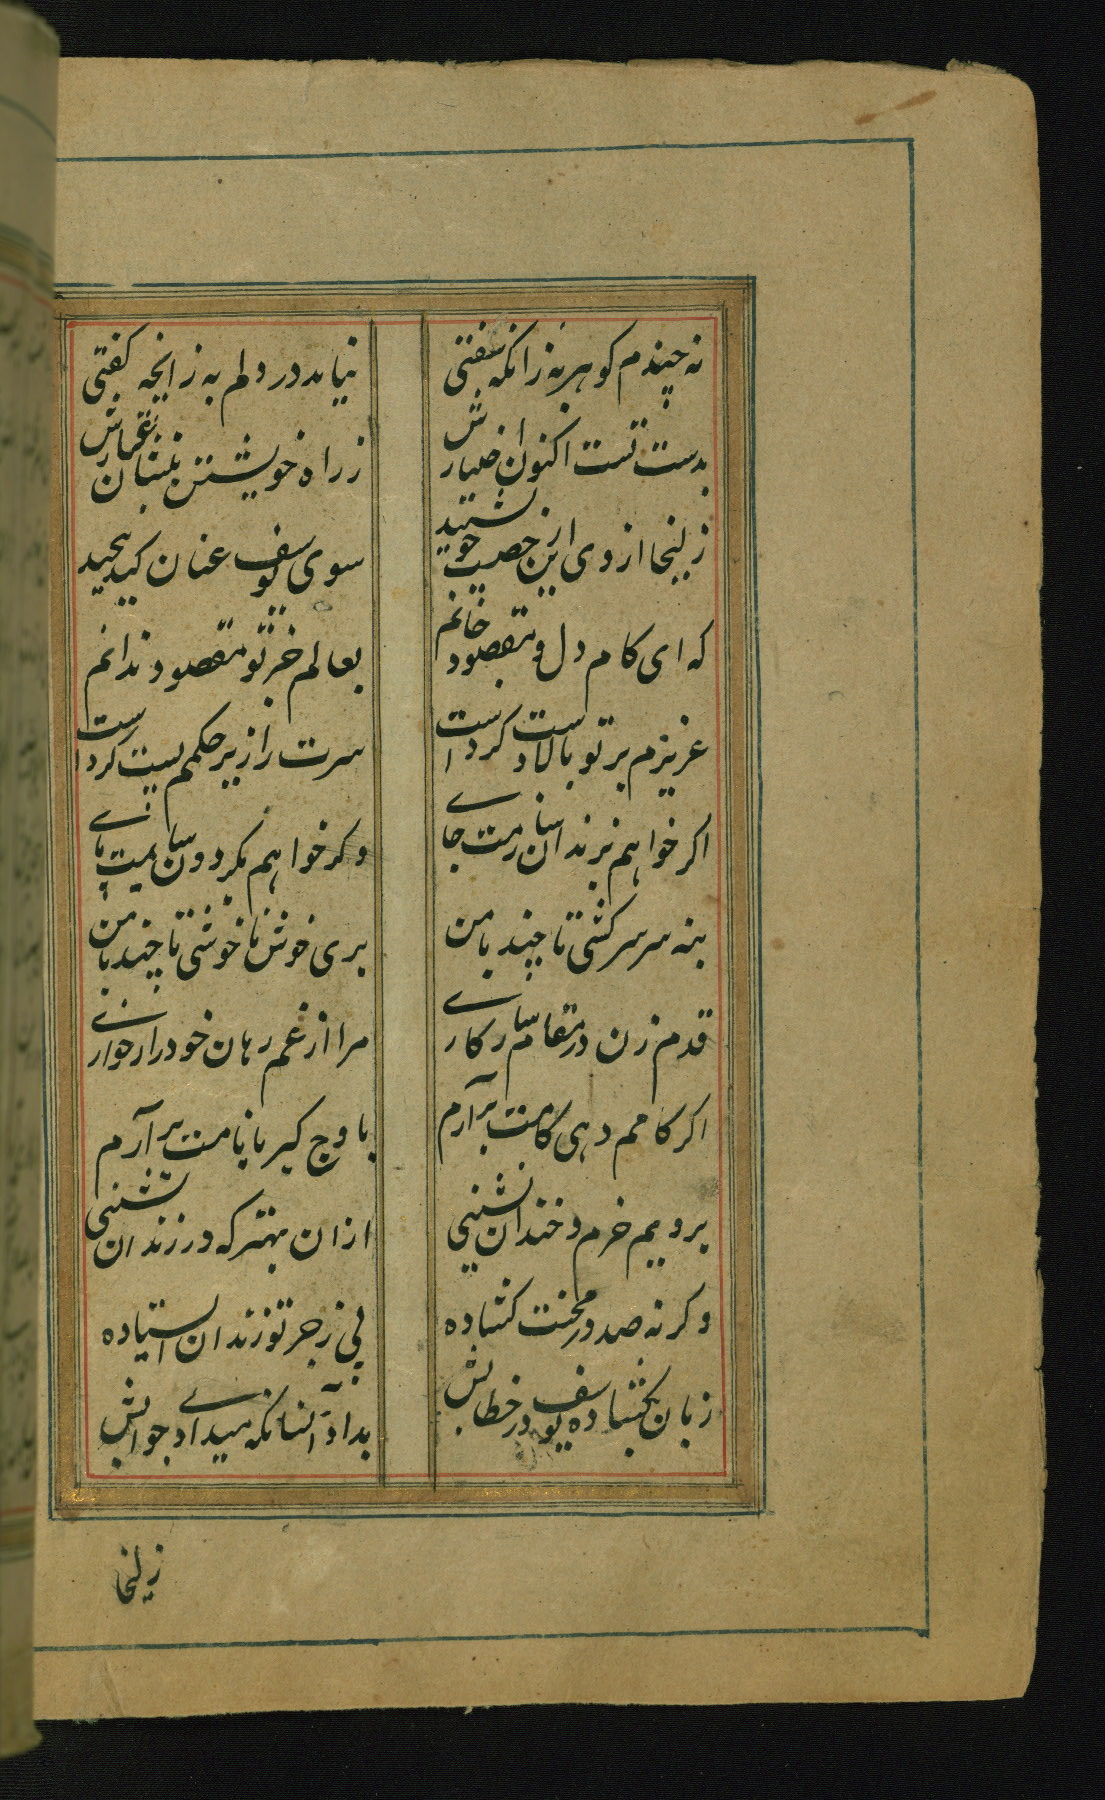 نه چیدم گوهر به زانکه سفتی نیاید در دلم به زانچه گفتی
بدست تست اکنون اختیارش ز راه خویشتن بنشان غبارش
زلیخا از وی این حصیت چو بشنید سوی یوسف عنان کید پیچید
که ای کام دل و مقصود جانم بعالم جز تو مقصود ندانم
عزیزم بر تو بالادست کردست سرت را زیر حکمم پست کردست
اگر خواهم بزندان سازمت جای وگر خواهم بگردون سایمت پای
بنه سر سرکشی تا چند با من بری خوش ناخوشی تا چند با من
قدم زن در مقام سازگاری مرا از غم رهان خود را ز خواری
اگر کامم دهی کامت برآرم باوج کبریا نامت برآرم
برویم خرم و خندان نشینی ازان بهتر که در زندان نشینی
وگرنه صد در محنت گشاده پی زجر تو زندان ایستاده
زبان بگشاده یوسف در خطابش بداد آنسانکه میدادی جوابش
زلیخا